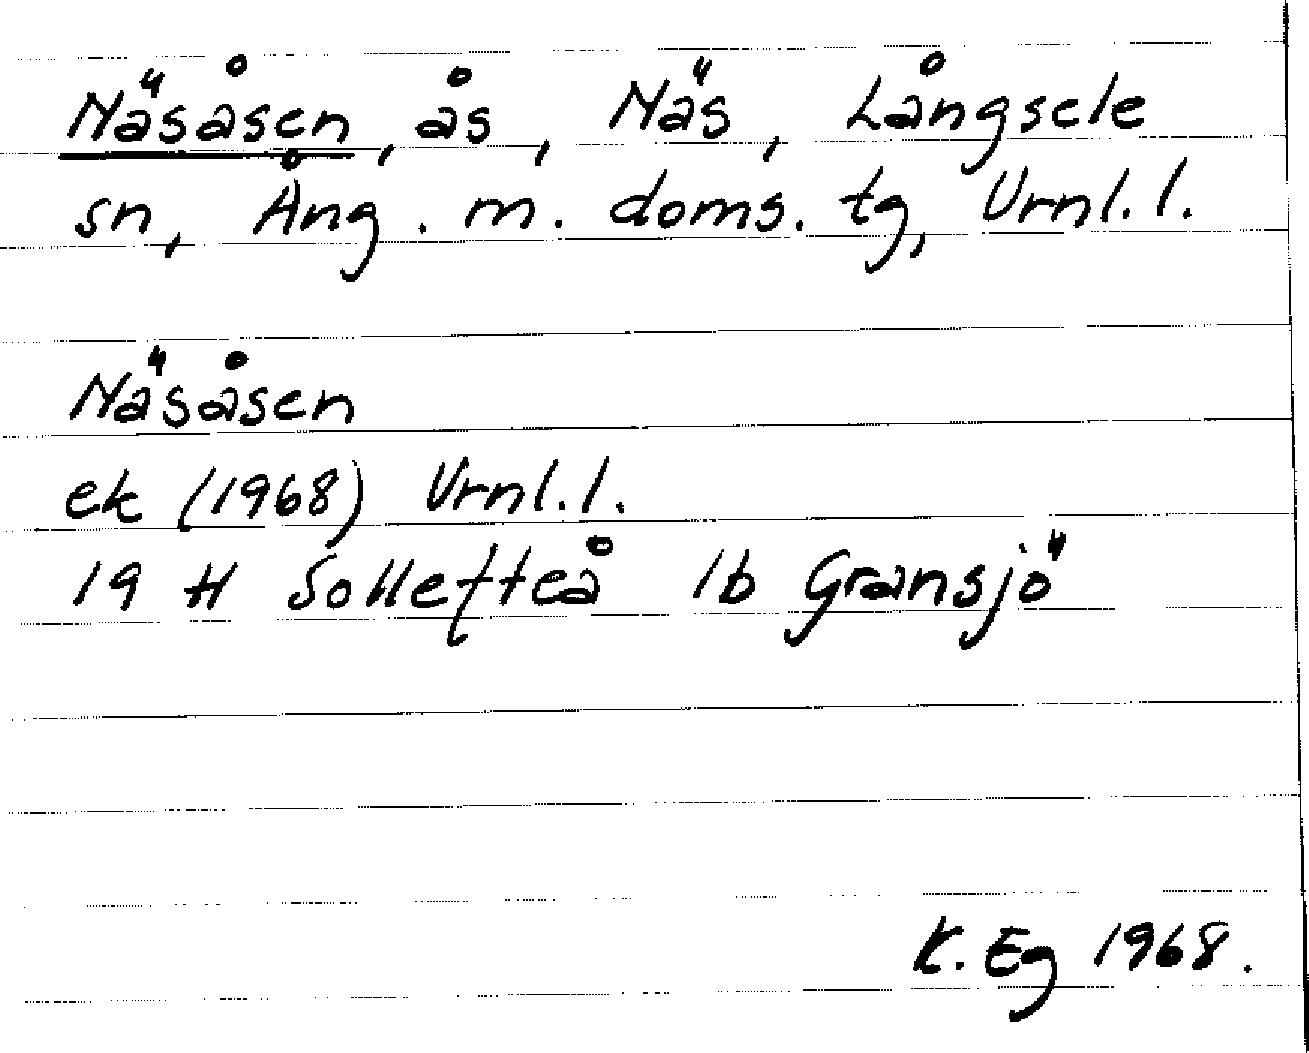 Näsåsen, ås, Näs, Långsele
sn, Ång. m. doms. tg, Vrnl. l.
Näsåsen
ek (1968) Vrnl. l.
19 H Sollefteå 1b Gransjö
K. Eg 1968.